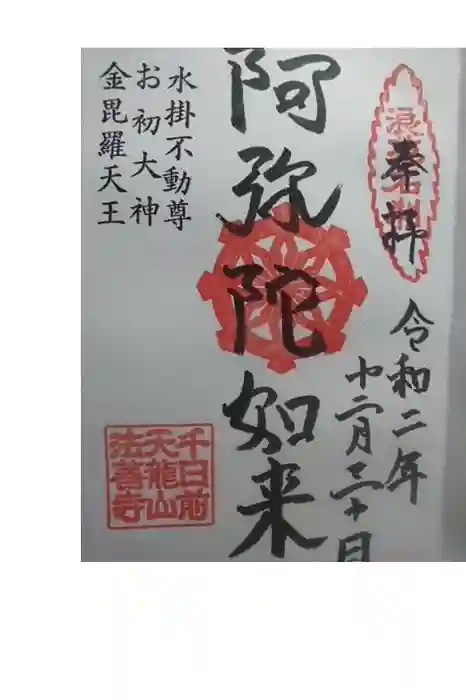 奉拝
令和二年
十二月三十日
阿弥陀如来
水掛不動尊
お初大神
金毘羅天王
千日前
天龍山
法善寺